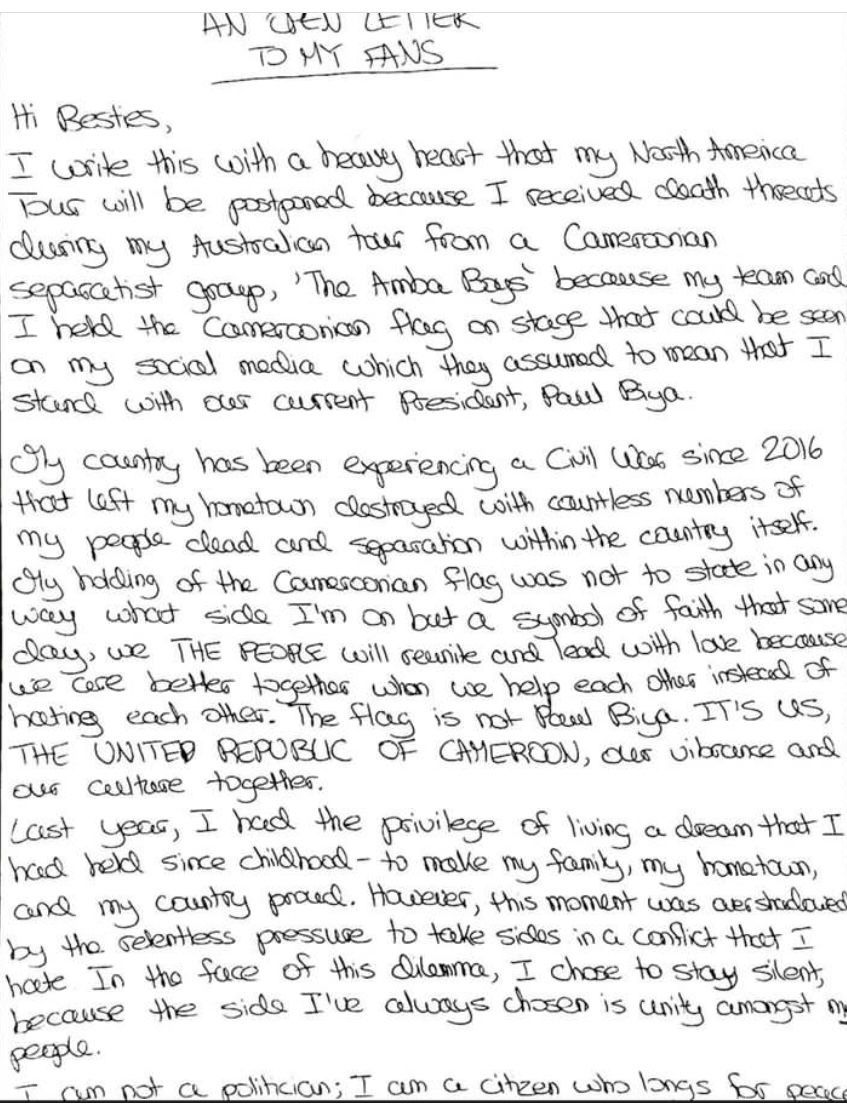 AN OPEN LETTER
TO MY FANS
Hi Besties,
I write this with a heavy heart that my North America
Tour will be postponed because I received death threats
during my Australian tour from a Cameroonian
separatist group, 'The Amba Boys' because my team and
I held the Cameroonian flag on stage that could be seen
on my social media which they assumed to mean that I
stand with our current President, Paul Biya.
My country has been experiencing a Civil War since 2016
that left my hometown destroyed with countless numbers of
my people dead and separation within the country itself.
My holding of the Cameroonian flag was not to state in any
way what side I'm on but a symbol of faith that some
day, we THE PEOPLE will reunite and lead with love because
we are better together when we help each other instead of
hating each other. The flag is not Paul Biya. IT'S US,
THE UNITED REPUBLIC OF CAMEROON, our vibrance and
our culture together.
Last year, I had the privilege of living a dream that I
had held since childhood - to make my family, my hometown,
and my country proud. However, this moment was overshadowed
by the relentless pressure to take sides in a conflict that I
hate In the face of this dilemma, I chose to stay silent,
because the side I've always chosen is unity amongst my
people.
I am not a politician; I am a citizen who longs for peace